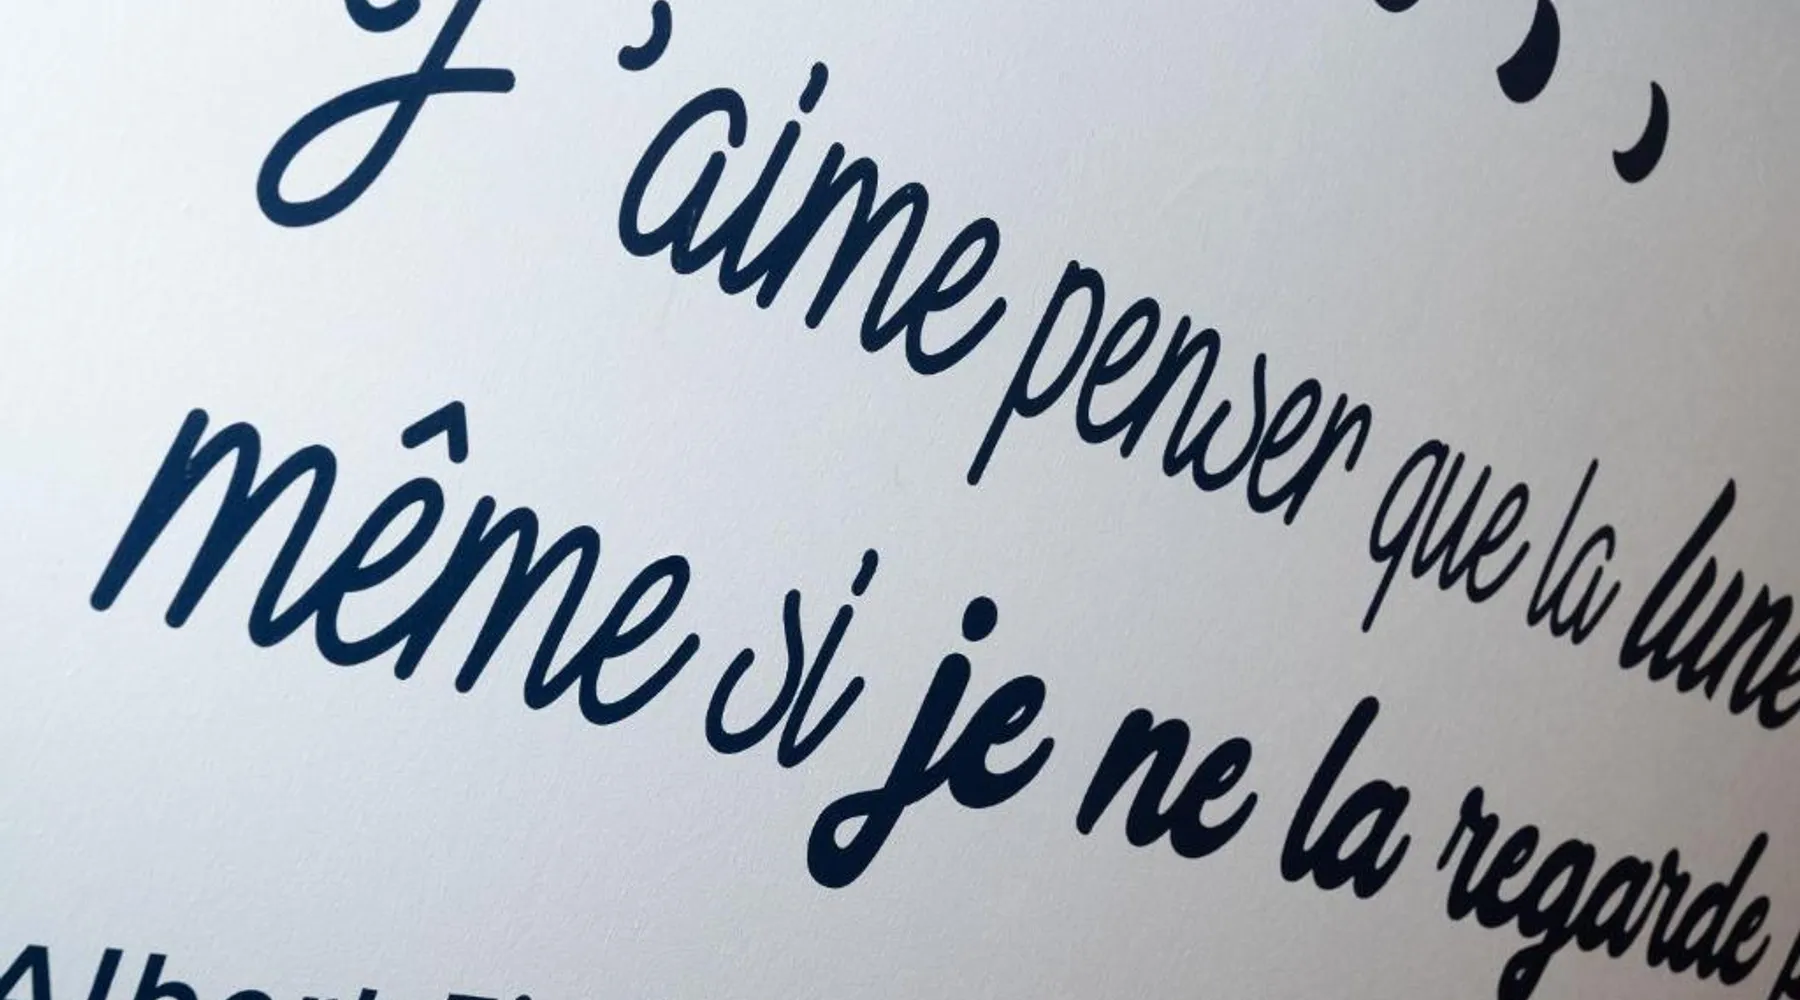 j'aime penser que la lune
même si je ne la regarde
Albert